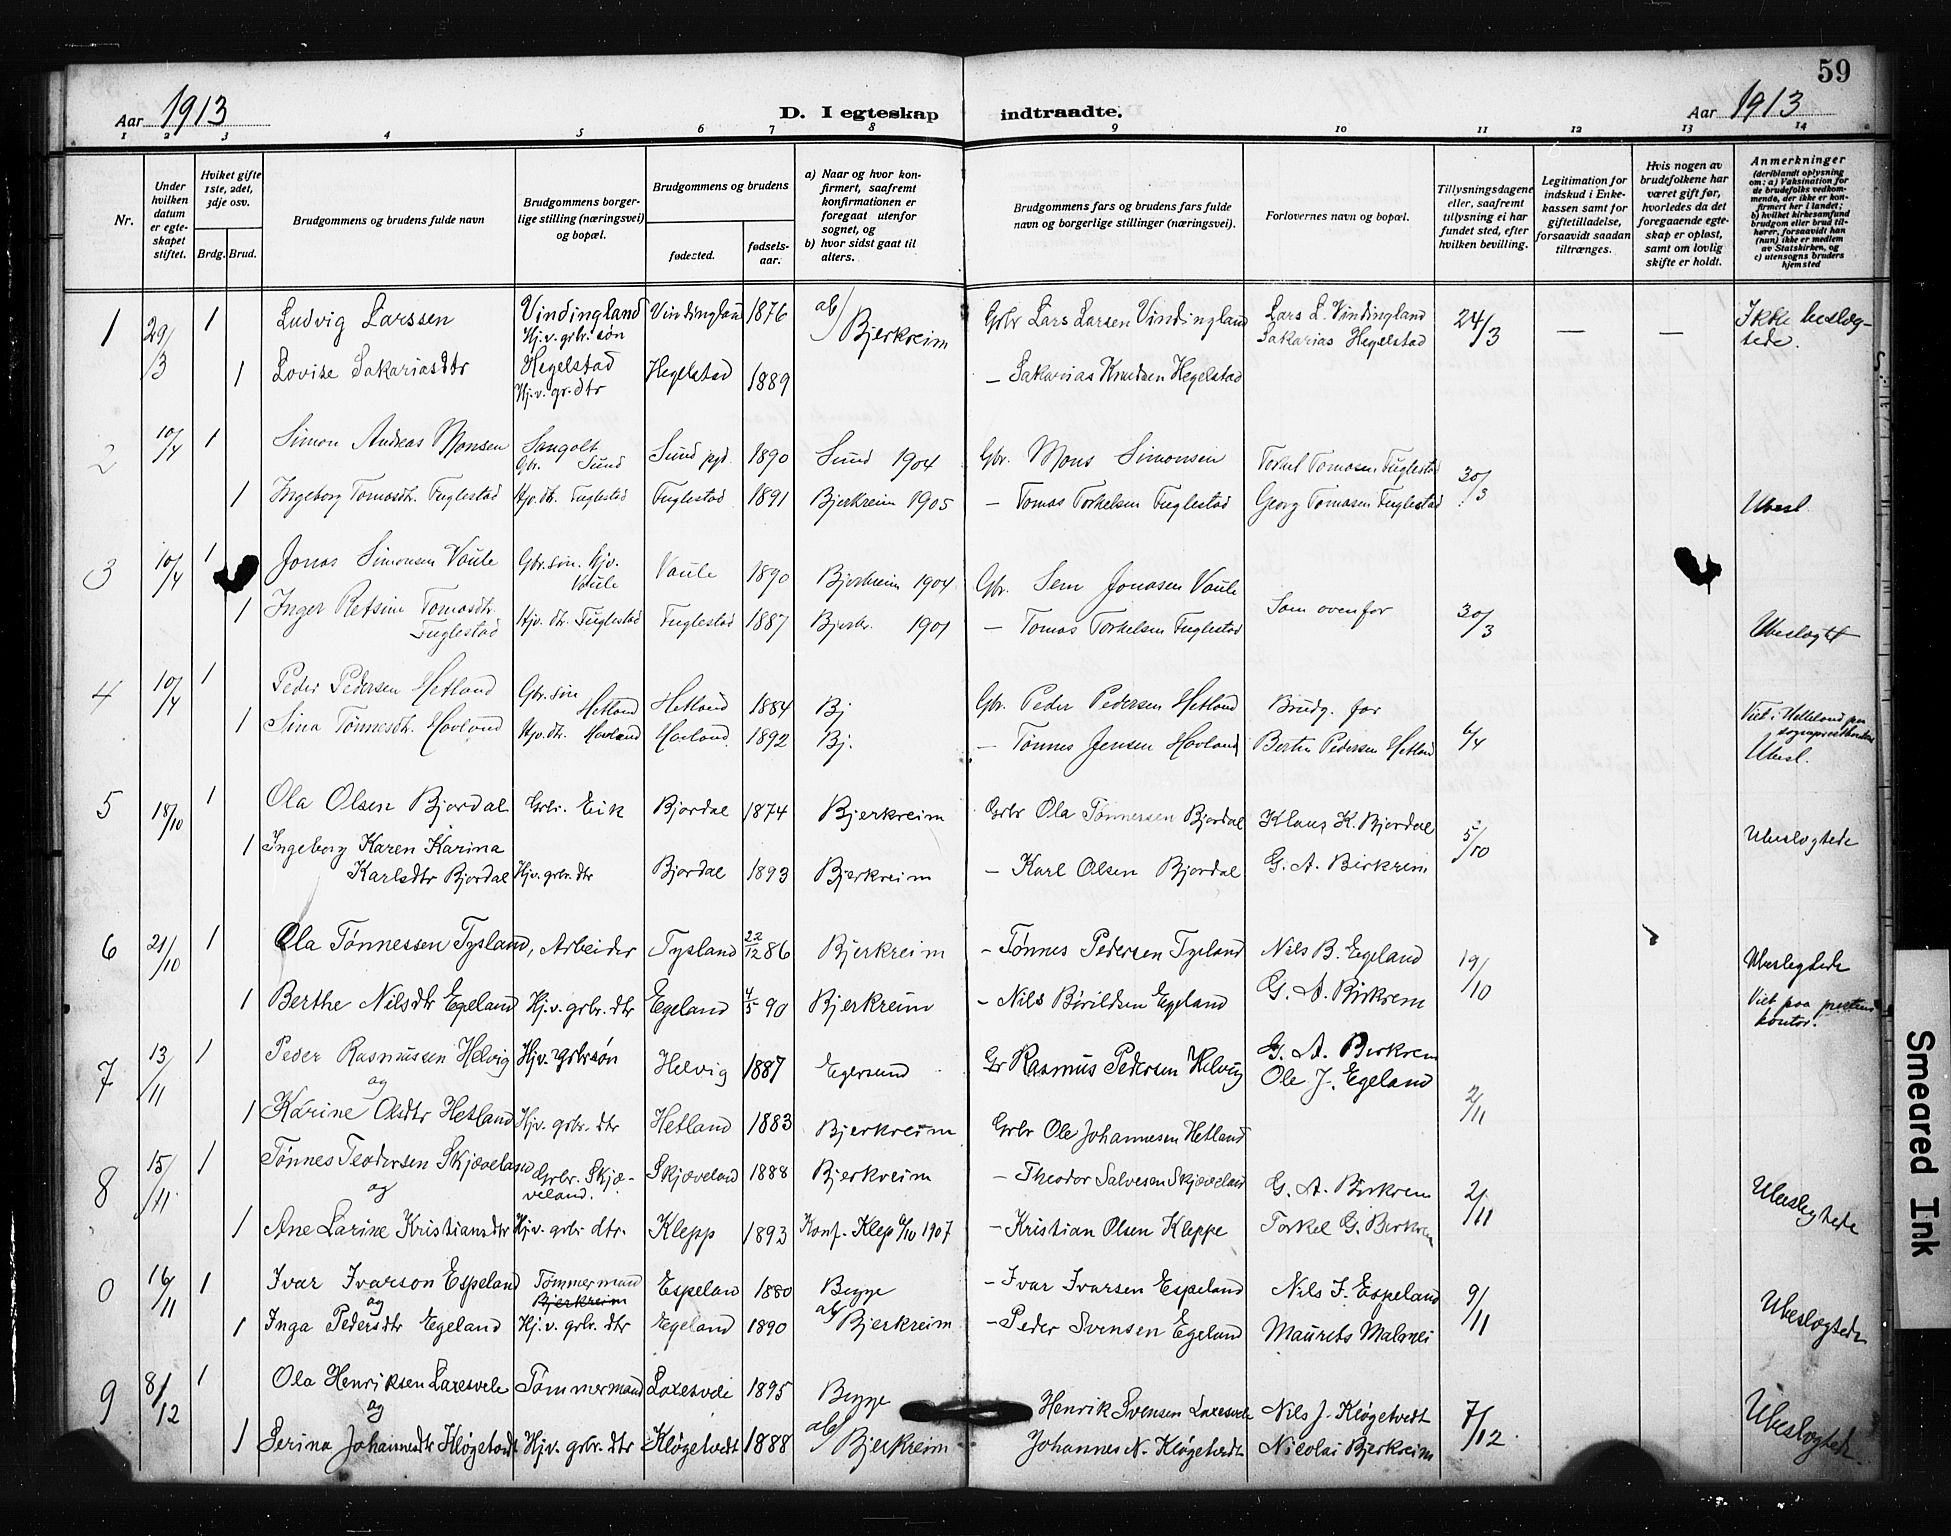 59
Aar 1913 D. I egteskap indtraadte. Aar 1913
1 2 3 4 5 6 7 8 9 10 11 12 13 14
Nr.
Under hvilken datum er egteskapet stiftet.
Hviket gifte 1ste, 2det, 3dje osv.
Brdg. Brud.
Brudgommens og brudens fulde navn
Brudgommens borgerlige stilling (næringsvei) og bopæl.
Brudgommens og brudens
fødested.
fødselsaar.
a) Naar og hvor konfirmert, saafremt konfirmationen er foregaat utenfor sognet, og
b) hvor sidst gaat til alters.
Brudgommens fars og brudens fars fulde navn og borgerlige stillinger (næringsvei).
Forlovernes navn og bopæl.
Tillysningsdagene eller, saafremt tillysning ei har fundet sted, efter hvilken bevilling.
Legitimation for indskud i Enkekassen samt for giftetilladelse, forsaavidt saadan tiltrænges.
Hvis nogen av brudefolkene har været gift før, hvorledes da det foregaaende egteskap er opløst, samt om lovlig skifte er holdt.
Anmerkninger
(deriblandt oplysning om: a) Vaksination for de brudefolks vedkommende, der ikke er konfirmert her i landet; b) hvilket kirkesamfund brudgom eller brud tilhører, forsaavidt han (hun) ikke er medlem av Statskirken, og c) utensogns bruders hjemsted
1 29/3 1 Ludvig Larssen Vindingland Hj.v. grbr. søn Vindingland 1876 ab/ Bjerkreim Grbr Lars Larsen Vindingland Lars L. Vindingland Sakarias Hegelstad 24/3 — — Ikke beslegtede.
1 Lovise Sakariasdtr Hegelstad Hj.v. gr. dtr Hegelstad 1889 — Sakarias Knudsen Hegelstad
2 10/4 1 Simon Andreas Monsen Sangolt Gbr. Sund Sund pgd. 1890 Sund 1904 Gbr. Mons Simonsen Torkel Tomasen Fuglestad 30/3
1 Ingeborg Tomasdtr. Fuglestad Hjv. dtr. Fuglestad Fuglestad 1891 Bjerkreim 1905 — Tomas Torkelsen Fuglestad Georg Tomasen Fuglestad Ubesl.
3 10/4 1 Jonas Simonsen Vaule Gbr. søn. Hjv. Vaule Vaule 1890 Bjerkreim 1904 Gbr. Sem Jonasen Vaule Som ovenfor 30/3
1 Inger Retsine Tomasdtr. Fuglestad Hjv. dtr. Fuglestad Fuglestad 1887 Bjerkr. 1901 — Tomas Torkelsen Fuglestad Ubeslegtet
4 10/4 1 Peder Pedersen Hetland Gbr. søn Hetland Hetland 1884 Bj Gbr. Peder Pedersen Hetland Brudg. far 6/4 Viet i Helleland paa
1 Sina Tønnesdtr. Hovland Hjv. dtr. Hovland Hovland 1892 Bj. — Tønnes Jensen Hovland Bertin Pedersen Hetland Ubesl.
5 18/10 1 Ola Olsen Bjordal Grbr. Eik Bjordal 1874 Bjerkreim Grbr Ola Tønnersen Bjordal Klaus K. Bjordal 5/10 Ubeslegtede
1 Ingeborg Karen Karina Karlsdtr Bjordal Hjv. grbr. dtr Bjordal 1893 Bjerkreim — Karl Olsen Bjordal G. A. Birkrem
6 21/10 1 Ola Tønnessen Tysland, Arbeider Tysland 22/12 86 Bjerkreim — Tønnes Pedersen Tysland Nils B. Egeland 19/10 Ubeslegtede
1 Berthe Nilsdtr Egeland Hj.v. grbr. dtr Egeland 4/5 90 Bjerkreim — Nils Børildsen Egeland G. A. Birkrem Viet paa prestens kontor.
7 13/11 1 Peder Rasmussen Helvig Hjv. grbrsøn Helvig 1887 Egersund Gr Rasmus Pedersen Helvig G. A. Birkrem Ole J. Egeland 2/11
og
1 Karine Olsdtr Hetland Hjv. grbr. dtr Hetland 1883 Bjerkreim Grbr Ole Johannesen Hetland
8 15/11 1 Tønnes Teodersen Skjæveland Grbr. Skjæveland. Skjæveland 1888 Bjerkreim — Theodor Salvesen Skjæveland G. A. Birkrem 2/11 Ubeslegtede
og
1 Ane Larine Kristiansdtr Hj.v. grbr dtr. Klepp 1893 Konf. Klep 6/10 1907 — Kristian Olsen Kleppe Torkel G. Birkrem
0 16/11 1 Ivar Ivarson Espeland Tømmermand Bjerkreim Espeland 1880 Begge — Ivar Ivarsen Espeland Nils I. Espeland 9/11 Ubeslegtede
og
1 Inga Pedersdtr Egeland Hj.v. grbr. dtr Egeland 1890 ab/ Bjerkreim — Peder Svensen Egeland Maurits Malmei
9 8/12 1 Ola Henriksen Laxesvele Tømmermand Laxesvele 1895 Begge Henrik Svensen Laxesvele Nils J. Kløgetvedt 7/12 Ubeslegtede.
og
1 Serina Johannesdtr Kløgetvedt Hj.v. grbr. dtr Kløgetvedt 1888 ab/ Bjerkreim Johannes N. Kløgetvedt Nicolai Bjerkreim
Smeared Ink